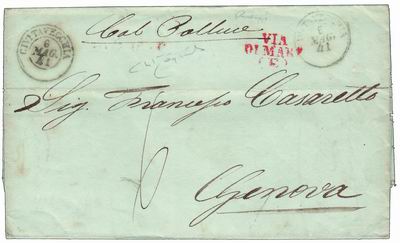 Col Polluce
CIVITAVECCHIA
6
MAG.
41
VIA
DI MARE
(E)
6
MAG.
41
Sig. Francesco Casaretto
Genova